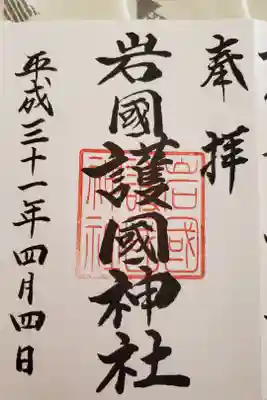 奉拝
岩國護國神社
岩國護國神社
平成三十一年四月四日